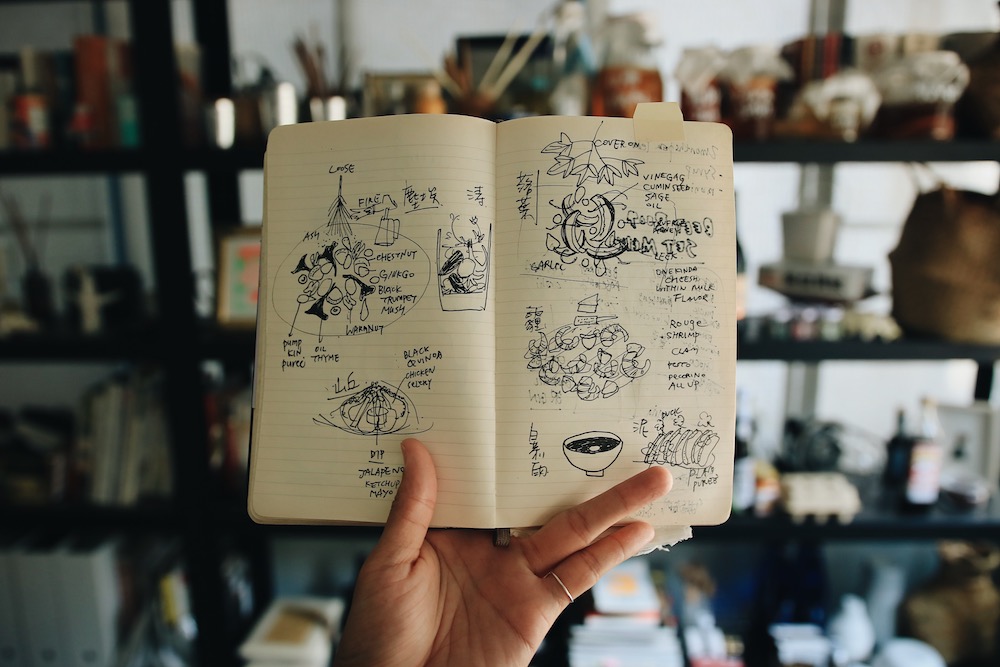 LOOSE
FIRE
ASH
CHESTNUT
GINKGO
BLACK
TRUMPET
MUSH
WARANUT
PUMP
KIN
PUREE
OIL
THYME
濤
山丘
BLACK
QUINOA
CHICKEN
CELERY
DIP
JALAPENO
KETCHUP
MAYO
COVER ON
落葉
VINEGAG
CUMIN SEED
SAGE
OIL
LECK
GARLIC
ONE KINDA
CHEESE
WITHIN MILK
FLAVOR!
ROUGE
SHRIMP
CLAM
PESTO
PECORINO
ALL UP
DUCK
泥
PUREE